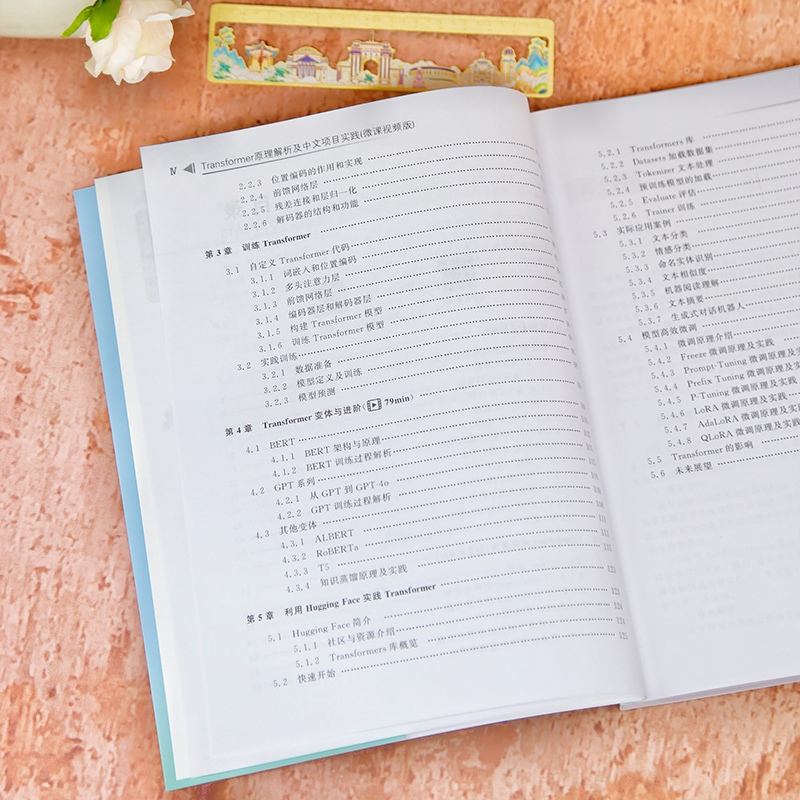 Ⅳ Transformer原理解析及中文项目实践(微课视频版)
2.2.3 位置编码的作用和实现
2.2.4 前馈网络层
2.2.5 残差连接和层归一化
2.2.6 解码器的结构和功能
第3章 训练 Transformer
3.1 自定义 Transformer 代码
3.1.1 词嵌入和位置编码
3.1.2 多头注意力层
3.1.3 前馈网络层
3.1.4 编码器层和解码器层
3.1.5 构建 Transformer 模型
3.1.6 训练 Transformer 模型
3.2 实践训练
3.2.1 数据准备
3.2.2 模型定义及训练
3.2.3 模型预测
第4章 Transformer 变体与进阶(79min)
4.1 BERT
4.1.1 BERT 架构与原理
4.1.2 BERT 训练过程解析
4.2 GPT 系列
4.2.1 从 GPT 到 GPT-4o
4.2.2 GPT 训练过程解析
4.3 其他变体
4.3.1 ALBERT
4.3.2 RoBERTa
4.3.3 T5
4.3.4 知识蒸馏原理及实践
第5章 利用 Hugging Face 实践 Transformer
5.1 Hugging Face 简介
5.1.1 社区与资源介绍
5.1.2 Transformers 库概览
5.2 快速开始
5.2.1 Transformers 库
5.2.2 Datasets 加载数据集
5.2.3 Tokenizer 文本处理
5.2.4 预训练模型的加载
5.2.5 Evaluate 评估
5.2.6 Trainer 训练
5.3 实际应用案例
5.3.1 文本分类
5.3.2 情感分类
5.3.3 命名实体识别
5.3.4 文本相似度
5.3.5 机器阅读理解
5.3.6 文本摘要
5.3.7 生成式对话机器人
5.4 模型高效微调
5.4.1 微调原理介绍
5.4.2 Freeze 微调原理及实践
5.4.3 Prompt-Tuning 微调原理
5.4.4 Prefix Tuning 微调原理
5.4.5 P-Tuning 微调原理及实践
5.4.6 LoRA 微调原理及实践
5.4.7 AdaLoRA 微调原理及实践
5.4.8 QLoRA 微调原理及实践
5.5 Transformer 的影响
5.6 未来展望